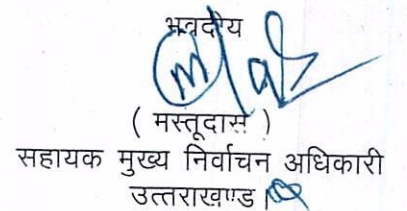 भवदीय
( मस्तूदास )
सहायक मुख्य निर्वाचन अधिकारी
उत्तराखण्ड।